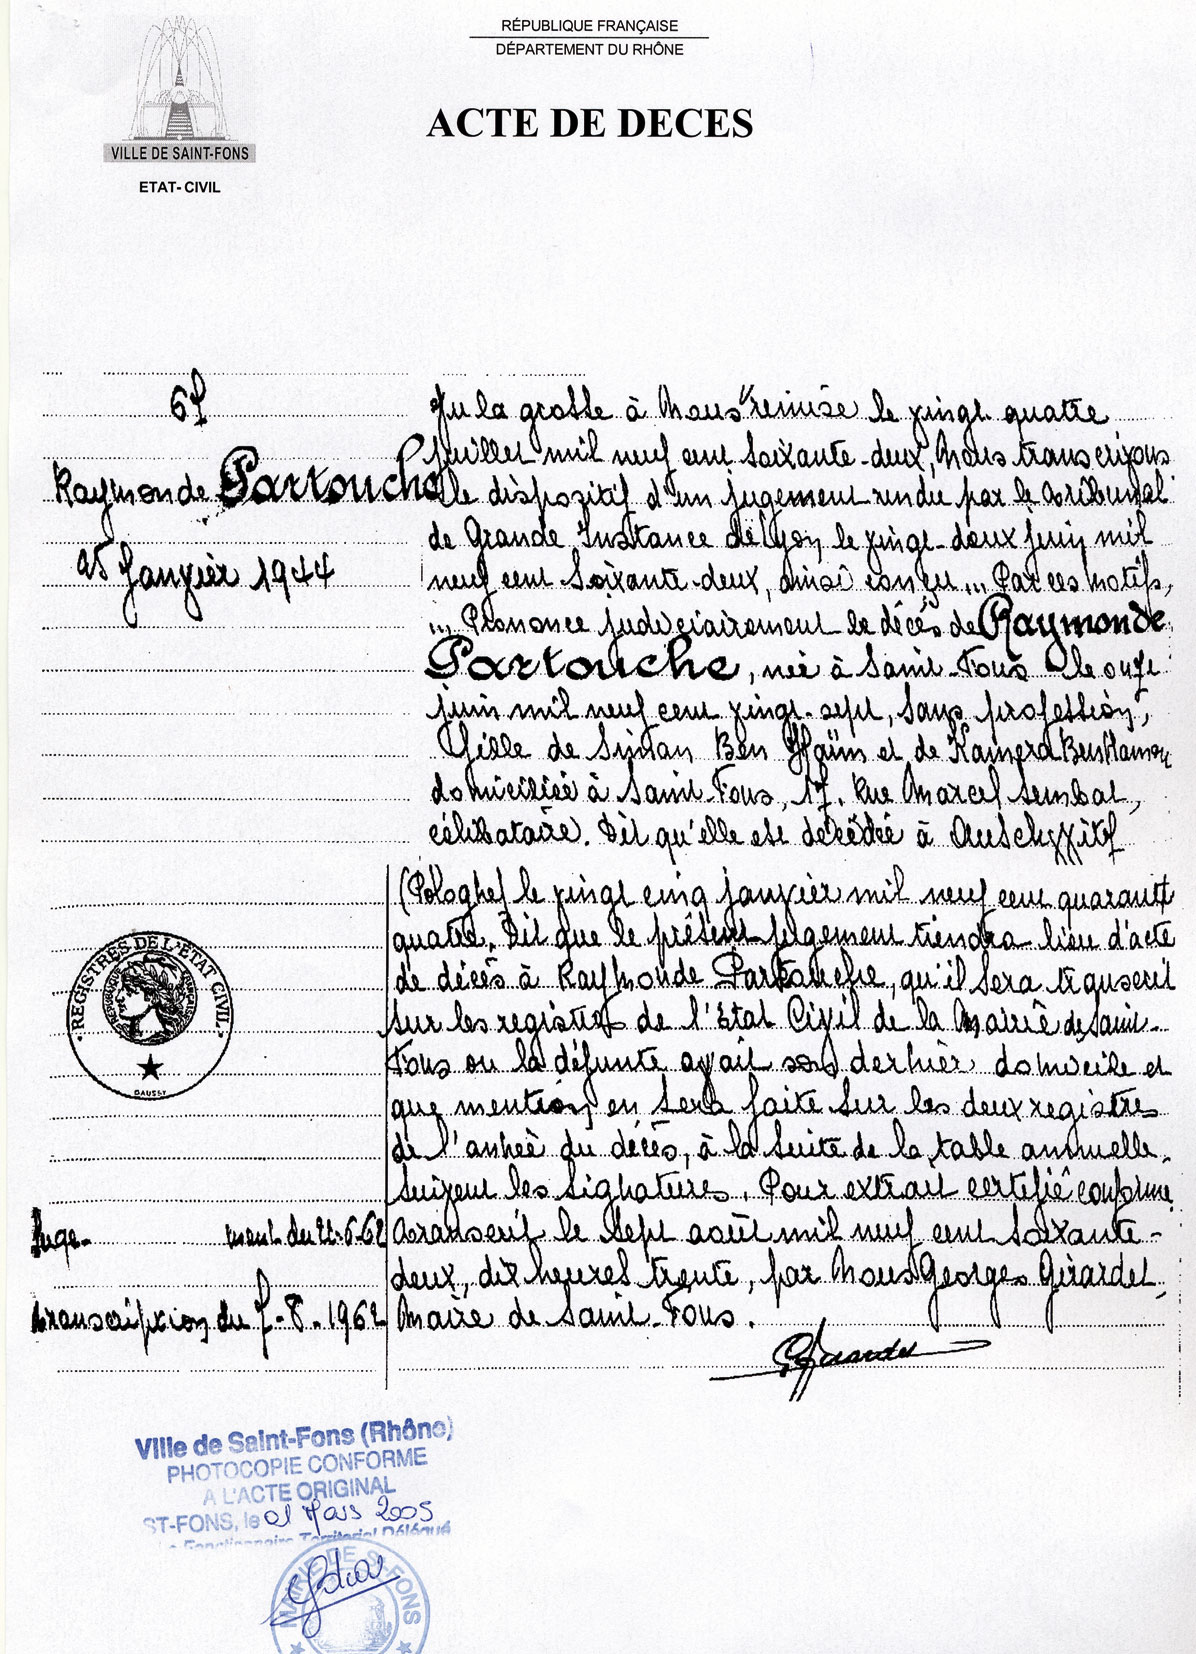 RÉPUBLIQUE FRANÇAISE
DÉPARTEMENT DU RHÔNE
ACTE DE DECES
VILLE DE SAINT-FONS
ETAT-CIVIL
67
Raymonde Partouche
25 Janvier 1944
Vu la grosse à Nous remise le vingt quatre
juillet mil neuf cent soixante-deux, Nous transcrivons
le dispositif d'un jugement rendu par le Tribunal
de Grande Instance de Lyon le vingt-deux juin mil
neuf cent soixante-deux, ainsi conçu ... Par ces motifs,
... Prononce judiciairement le décès de Raymonde
Partouche, née à Saint-Fons le onze
juin mil neuf cent vingt-sept, sans profession,
fille de Simon Ben Haïm et de Kamera Ben Hamou
domiciliée à Saint-Fons, 17, Rue Marcel Sembat,
célibataire. Dit qu'elle est décédée à Auschwitz
(Pologne) le vingt cinq janvier mil neuf cent quarante
quatre. Dit que le présent jugement tiendra lieu d'acte
de décès à Raymonde Partouche, qu'il sera transcrit
sur les registres de l'Etat Civil de la Mairie de Saint-
Fons ou la défunte avait son dernier domicile et
que mention en sera faite sur les deux registres
de l'année du décès, à la suite de la table annuelle.
Suivent les signatures. Pour extrait certifié conforme
Transcrit le sept août mil neuf cent soixante-
deux, dix heures trente, par Nous Georges Girardet,
Maire de Saint-Fons.
REGISTRES DE L'ETAT CIVIL
REPUBLIQUE FRANÇAISE
DAUSSY
Juge- ment du 22-6-62
transcription du 7-8-1962
Ville de Saint-Fons (Rhône)
PHOTOCOPIE CONFORME
A L'ACTE ORIGINAL
ST-FONS, le 01 Mars 2005
Le Fonctionnaire Territorial Délégué
MAIRIE DE ST-FONS